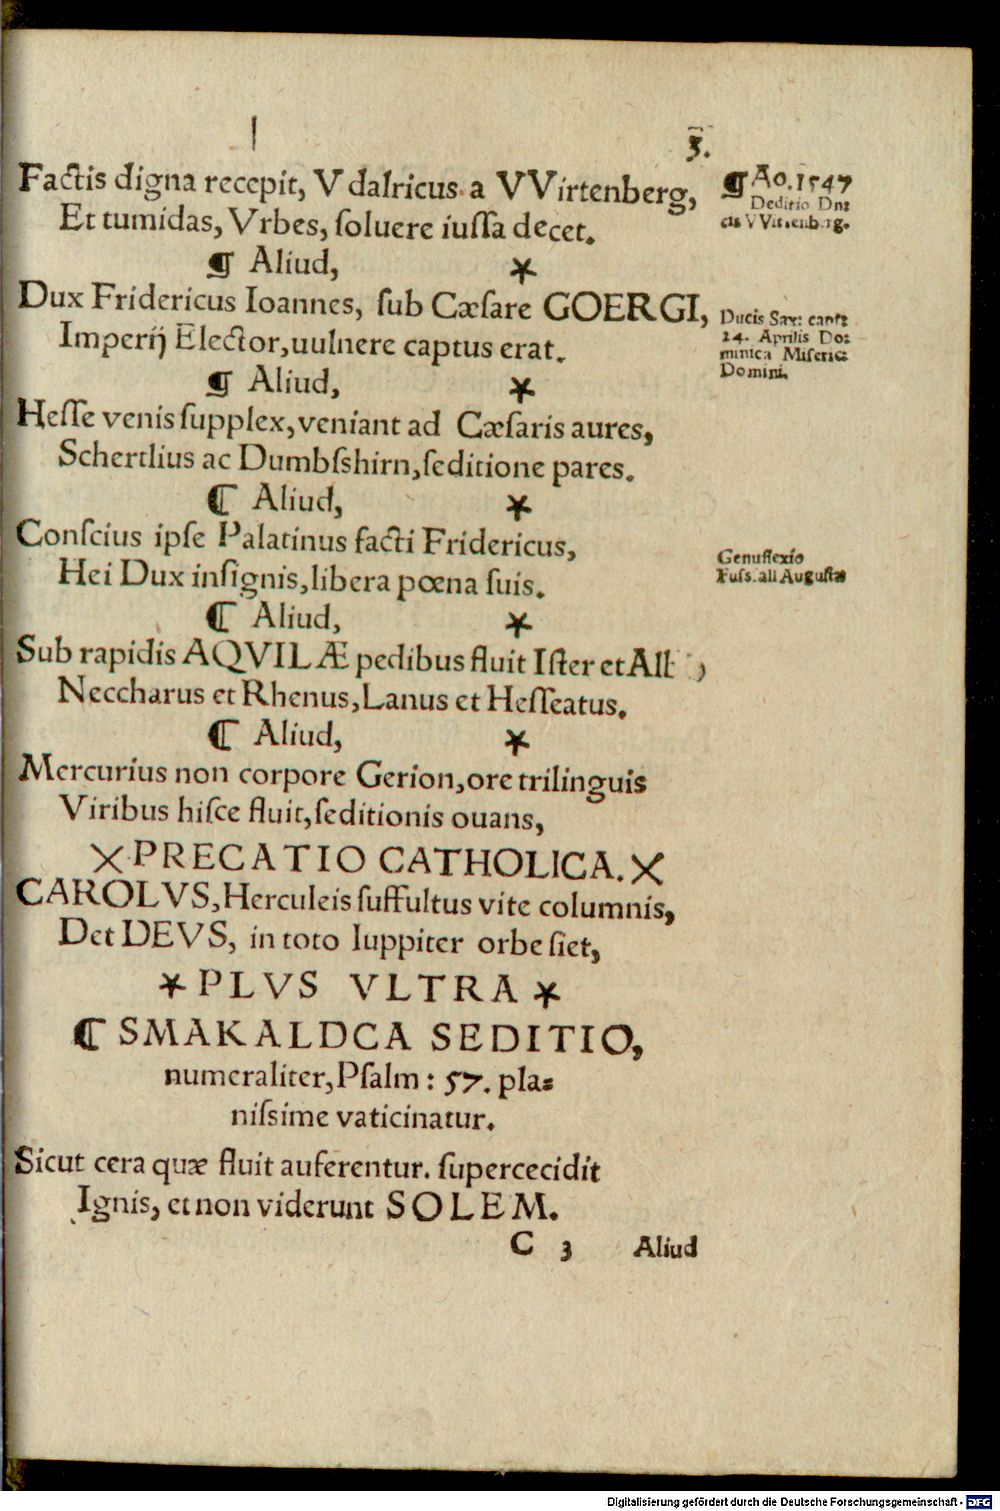 3.
Factis digna recepit, Vdalricus a VVirtenberg,
¶ Ao. 1547
Deditio Dn:
cis VVirtenberg.
Et tumidas, Vrbes, soluere iussa decet.
¶ Aliud, *
Dux Fridericus Ioannes, sub Cæsare GOERGI,
Ducis Sax: capt:
24. Aprilis Do:
minica Miseric:
Domini.
Imperij Elector, uulnere captus erat.
¶ Aliud, *
Hesse venis supplex, veniant ad Cæsaris aures,
Schertlius ac Dumbsshirn, seditione pares.
¶ Aliud, *
Conscius ipse Palatinus facti Fridericus,
Genuflexio
Fuss. all Augustæ
Hei Dux insignis, libera pœna suis.
¶ Aliud, *
Sub rapidis AQVILÆ pedibus fluit Ister et
Neccharus et Rhenus, Lanus et Hesseatus.
¶ Aliud, *
Mercurius non corpore Gerion, ore trilinguis
Viribus hisce fluit, seditionis ouans,
× PRECATIO CATHOLICA. ×
CAROLVS, Herculeis suffultus vite columnis,
Det DEVS, in toto Iuppiter orbe siet,
* PLVS VLTRA *
¶ SMAKALDCA SEDITIO,
numeraliter, Psalm: 57. pla=
nissime vaticinatur.
Sicut cera quæ fluit auferentur. supercecidit
Ignis, et non viderunt SOLEM.
C 3 Aliud
Digitalisierung gefördert durch die Deutsche Forschungsgemeinschaft - DFG